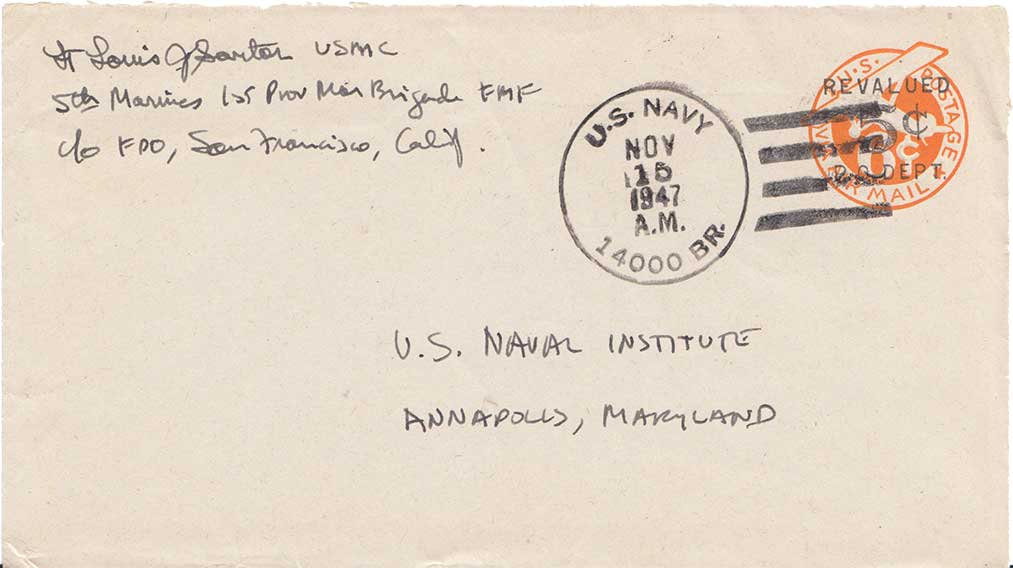 Lt Louis J Sartor USMC
5th Marines 1st Prov Mar Brigade FMF
c/o FPO, San Francisco, Calif.
U.S. NAVY
NOV
15
1947
A.M.
14000 BR.
U.S. POSTAGE
REVALUED
5¢
6¢
P.O. DEPT.
AIR MAIL
U.S. NAVAL INSTITUTE
ANNAPOLIS, MARYLAND